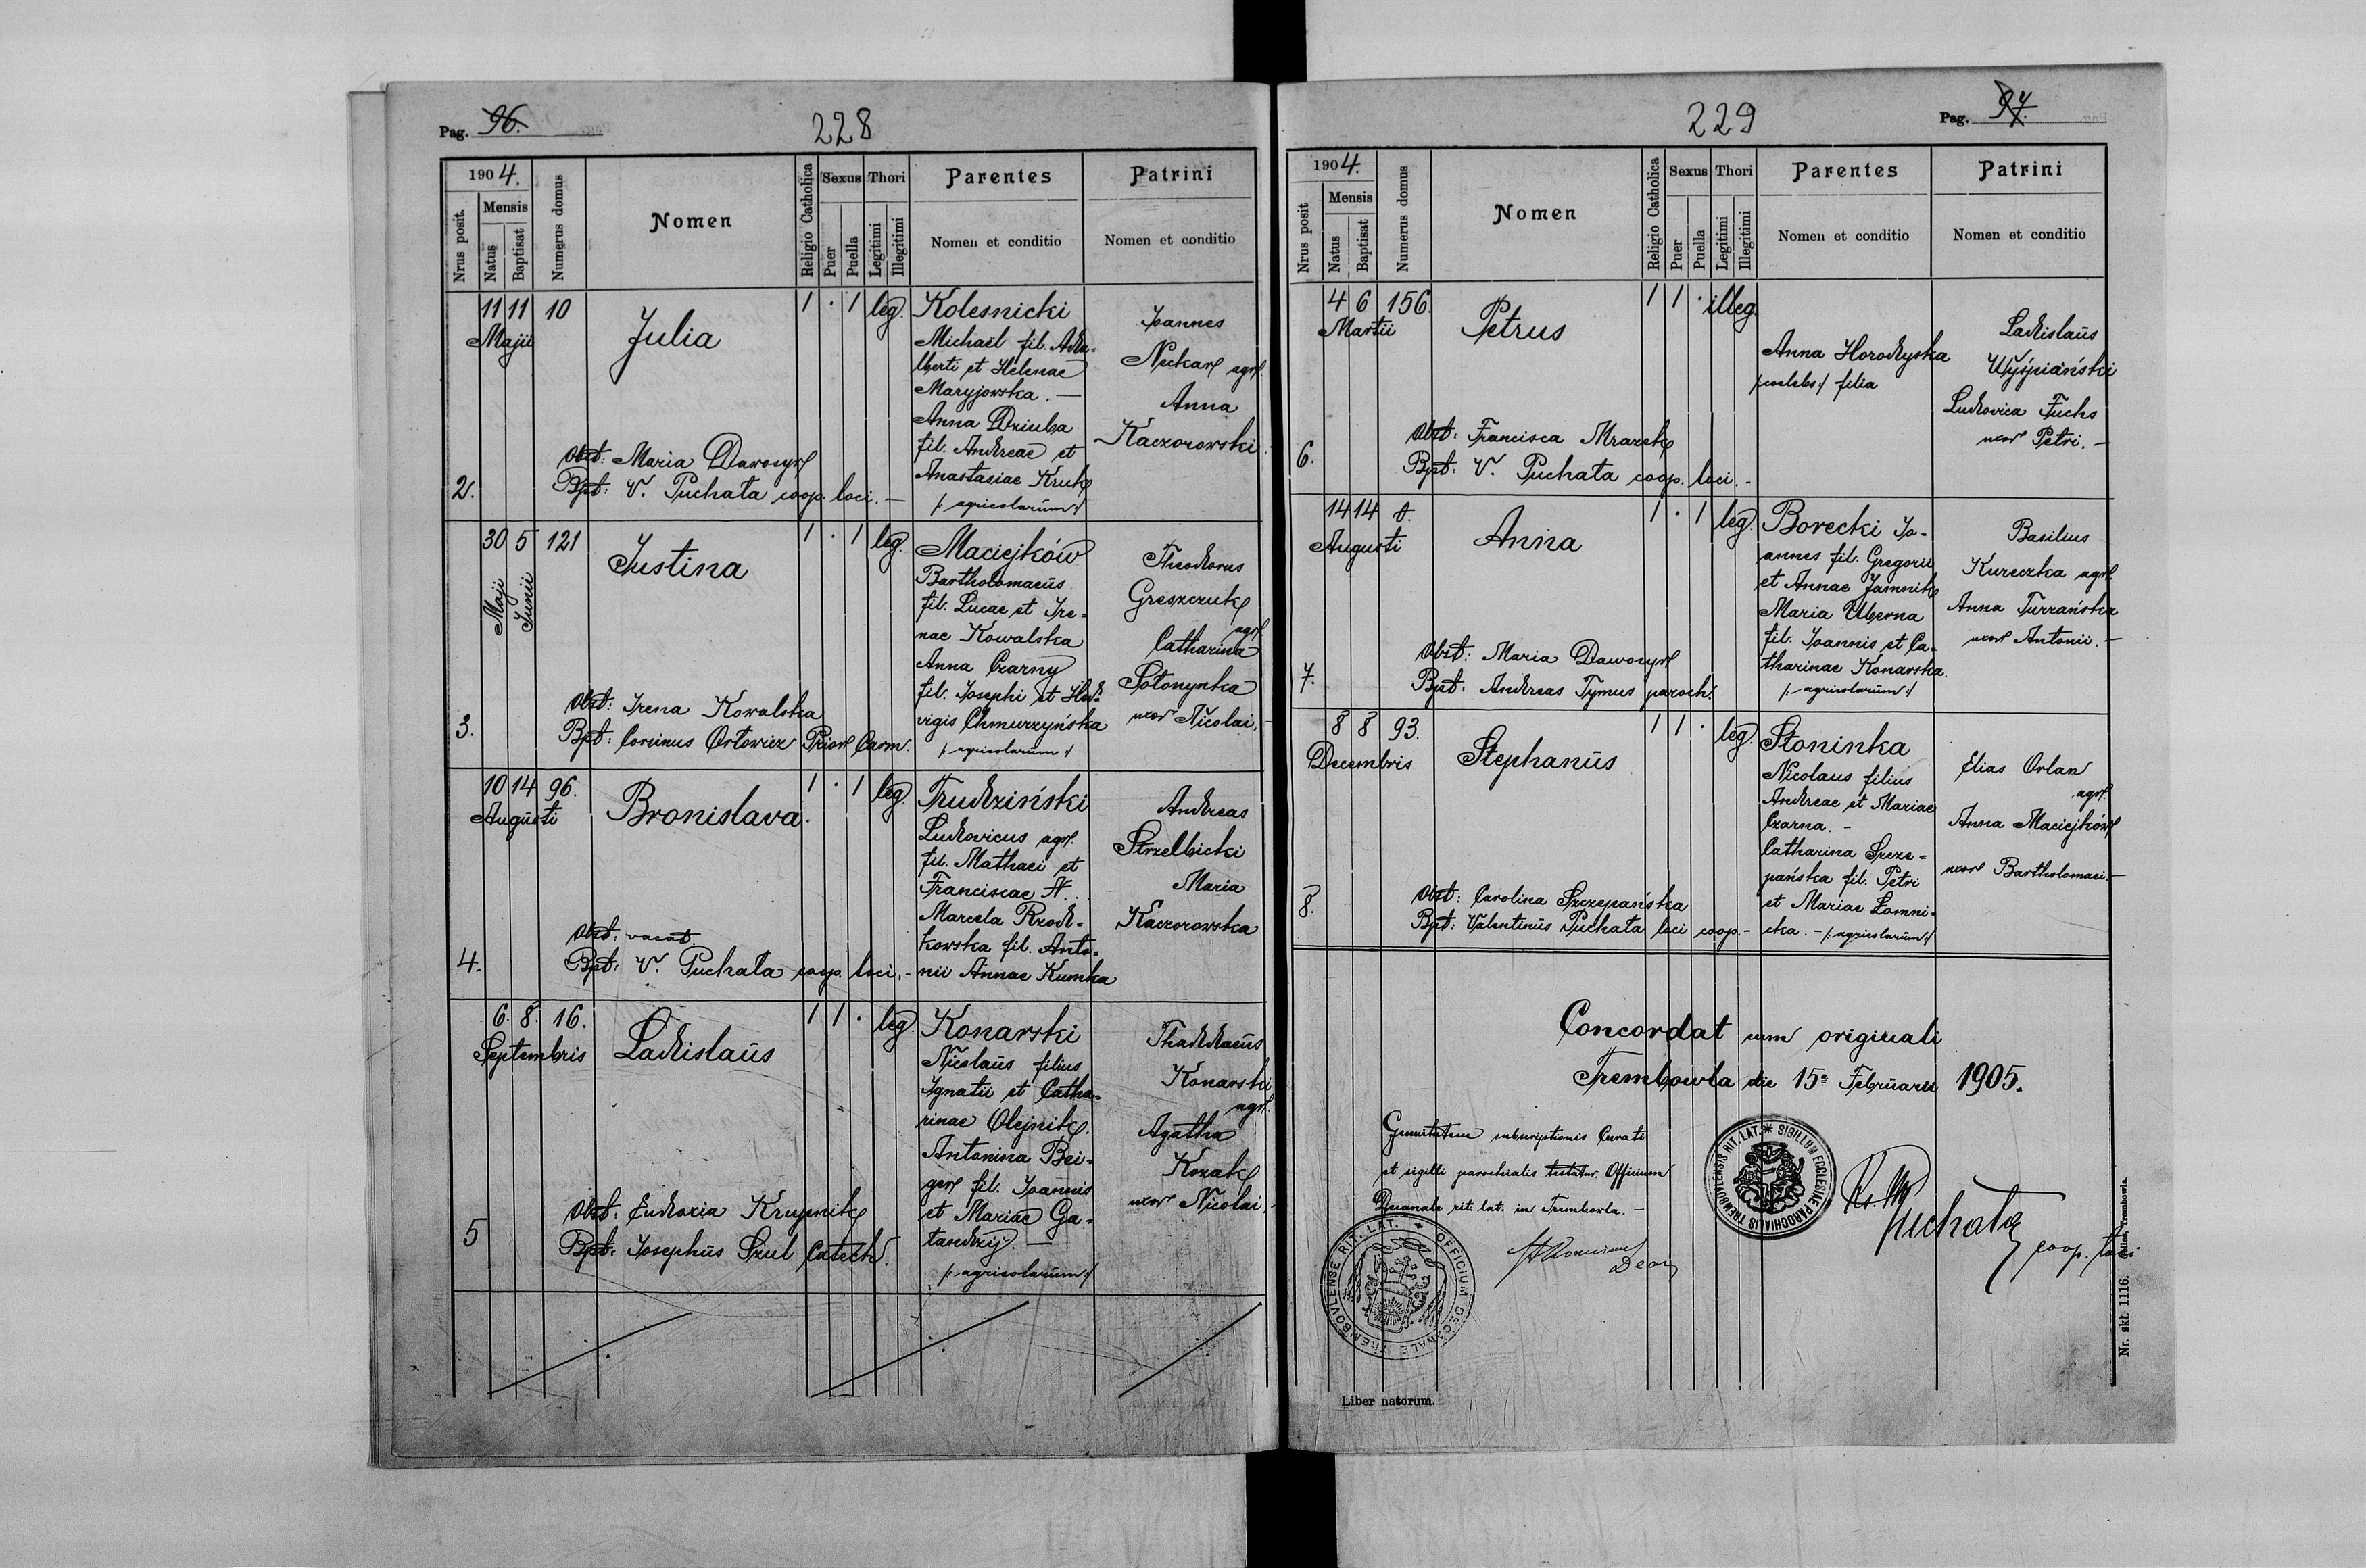 Pag. 96.
228
1904.
Nrus posit.
Mensis
Natus
Baptisat
Numerus domus
Nomen
Religio Catholica
Sexus
Puer
Puella
Thori
Legitimi
Illegitimi
Parentes
Nomen et conditio
Patrini
Nomen et conditio
2.
11 11 10
Maji
Julia
1 . 1 leg.
Obst: Maria Dawosyr
Bpt: V. Puchata coop. loci. —
Kolesnicki
Michael fil. Ada-
lberti et Helenae
Maryjowska. —
Anna Dziuba
fil. Andreae et
Anastasiae Kruk
/: agricolarum :/
Joannes
Neckar agr.
Anna
Kaczorowski
3.
30 5 121
Maji
Junii
Justina
1 . 1 leg.
Obst: Irena Kowalska
Bpt: Corsinus Ortowicz Prior Carm.
Maciejków
Bartholomaeus
fil. Lucae et Ire-
nae Kowalska
Anna Czarny
fil. Josephi et Hed-
vigis Chmurzyńska
/: agricolarum :/
Theodorus
Greszczuk
agr.
Catharina
Sołonynka
uxor Nicolai.
4.
10 14 96.
Augusti
Bronislava.
1 . 1 leg.
Obst: vacat.
Bpt: V. Puchata coop. loci. -
Trudziński
Ludovicus agr.
fil. Mathaei et
Franciscae N..
Marcela Rzod-
kowska fil. Anto-
nii Annae Kumka
Andreas
Strzelbicki
Maria
Kaczorowska
5
6. 8. 16.
Septembris
Ladislaus
1 1 . leg.
Obst: Eudoxia Krupnik
Bpt: Josephus Szul Catech.
Konarski
Nicolaus filius
Ignatii et Catha-
rinae Olejnik.
Antonina Bei-
ger fil. Joannis
et Mariae Ga-
tandzij. —
/: agricolarum :/
Thaddaeus
Konarski
agr.
Agatha
Kozak
uxor Nicolai. -
229
Pag. 97.
1904.
Nrus posit
Mensis
Natus
Baptisat
Numerus domus
Nomen
Religio Catholica
Sexus
Puer
Puella
Thori
Legitimi
Illegitimi
Parentes
Nomen et conditio
Patrini
Nomen et conditio
6.
4 6 156.
Martii
Petrus
1 1 . illeg.
Obst: Francisca Mrazek
Bpt: V. Puchata coop. loci. -
Anna Horodyska
filia
Ladislaus
Wyśpiański
Ludovica Fuchs
uxor Petri. -
7.
14 14
Augusti
Anna
1 . 1 leg.
Obst: Maria Dawosyr
Bpt: Andreas Tymus paroch.
Borecki Jo-
annes fil. Gregorii
et Annae Jamnik
Maria Uberna
fil. Joannis et Ca-
tharinae Konarska.
/: agricolarum :/
Basilius
Kureczka agr.
Anna Turzańska
uxor Antonii. —
8.
8 8 93.
Decembris
Stephanus
1 1 . leg.
Obst: Carolina Szczepańska
Bpt: Valentinus Puchata loci coop. -
Stoninka
Nicolaus filius
Andreae et Mariae
Czarna. -
Catharina Szcze-
pańska fil. Petri
et Mariae Łomni-
cka. - /: agricolarum :/
Elias Orlan
agr.
Anna Maciejków
uxor Bartholomaei. -
Concordat cum originali
Trembowla die 15a Februarii 1905.
Genuitatem subscriptionis Curati
et sigilli parochialis testatur. Officium
Decanale rit. lat. in Trembowla. -
Dean
SIGILLUM ECCLESIAE PAROCHIALIS TREMBOVLENSIS RIT. LAT.
OFFICIUM DECANALE TREMBOVLENSE RIT. LAT.
Puchata
coop. loci
Liber natorum.
Nr. skł. 1116.